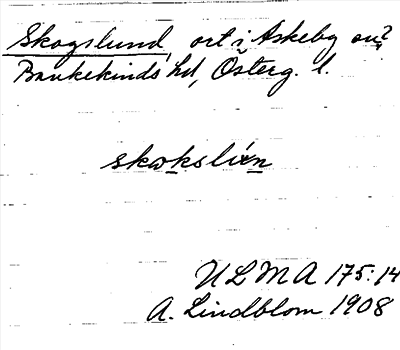 Skogslund, ort i Askeby sn?
Bankekinds hd, Österg. l.
skωksl
ULMA 175:14
A. Lindblom 1908